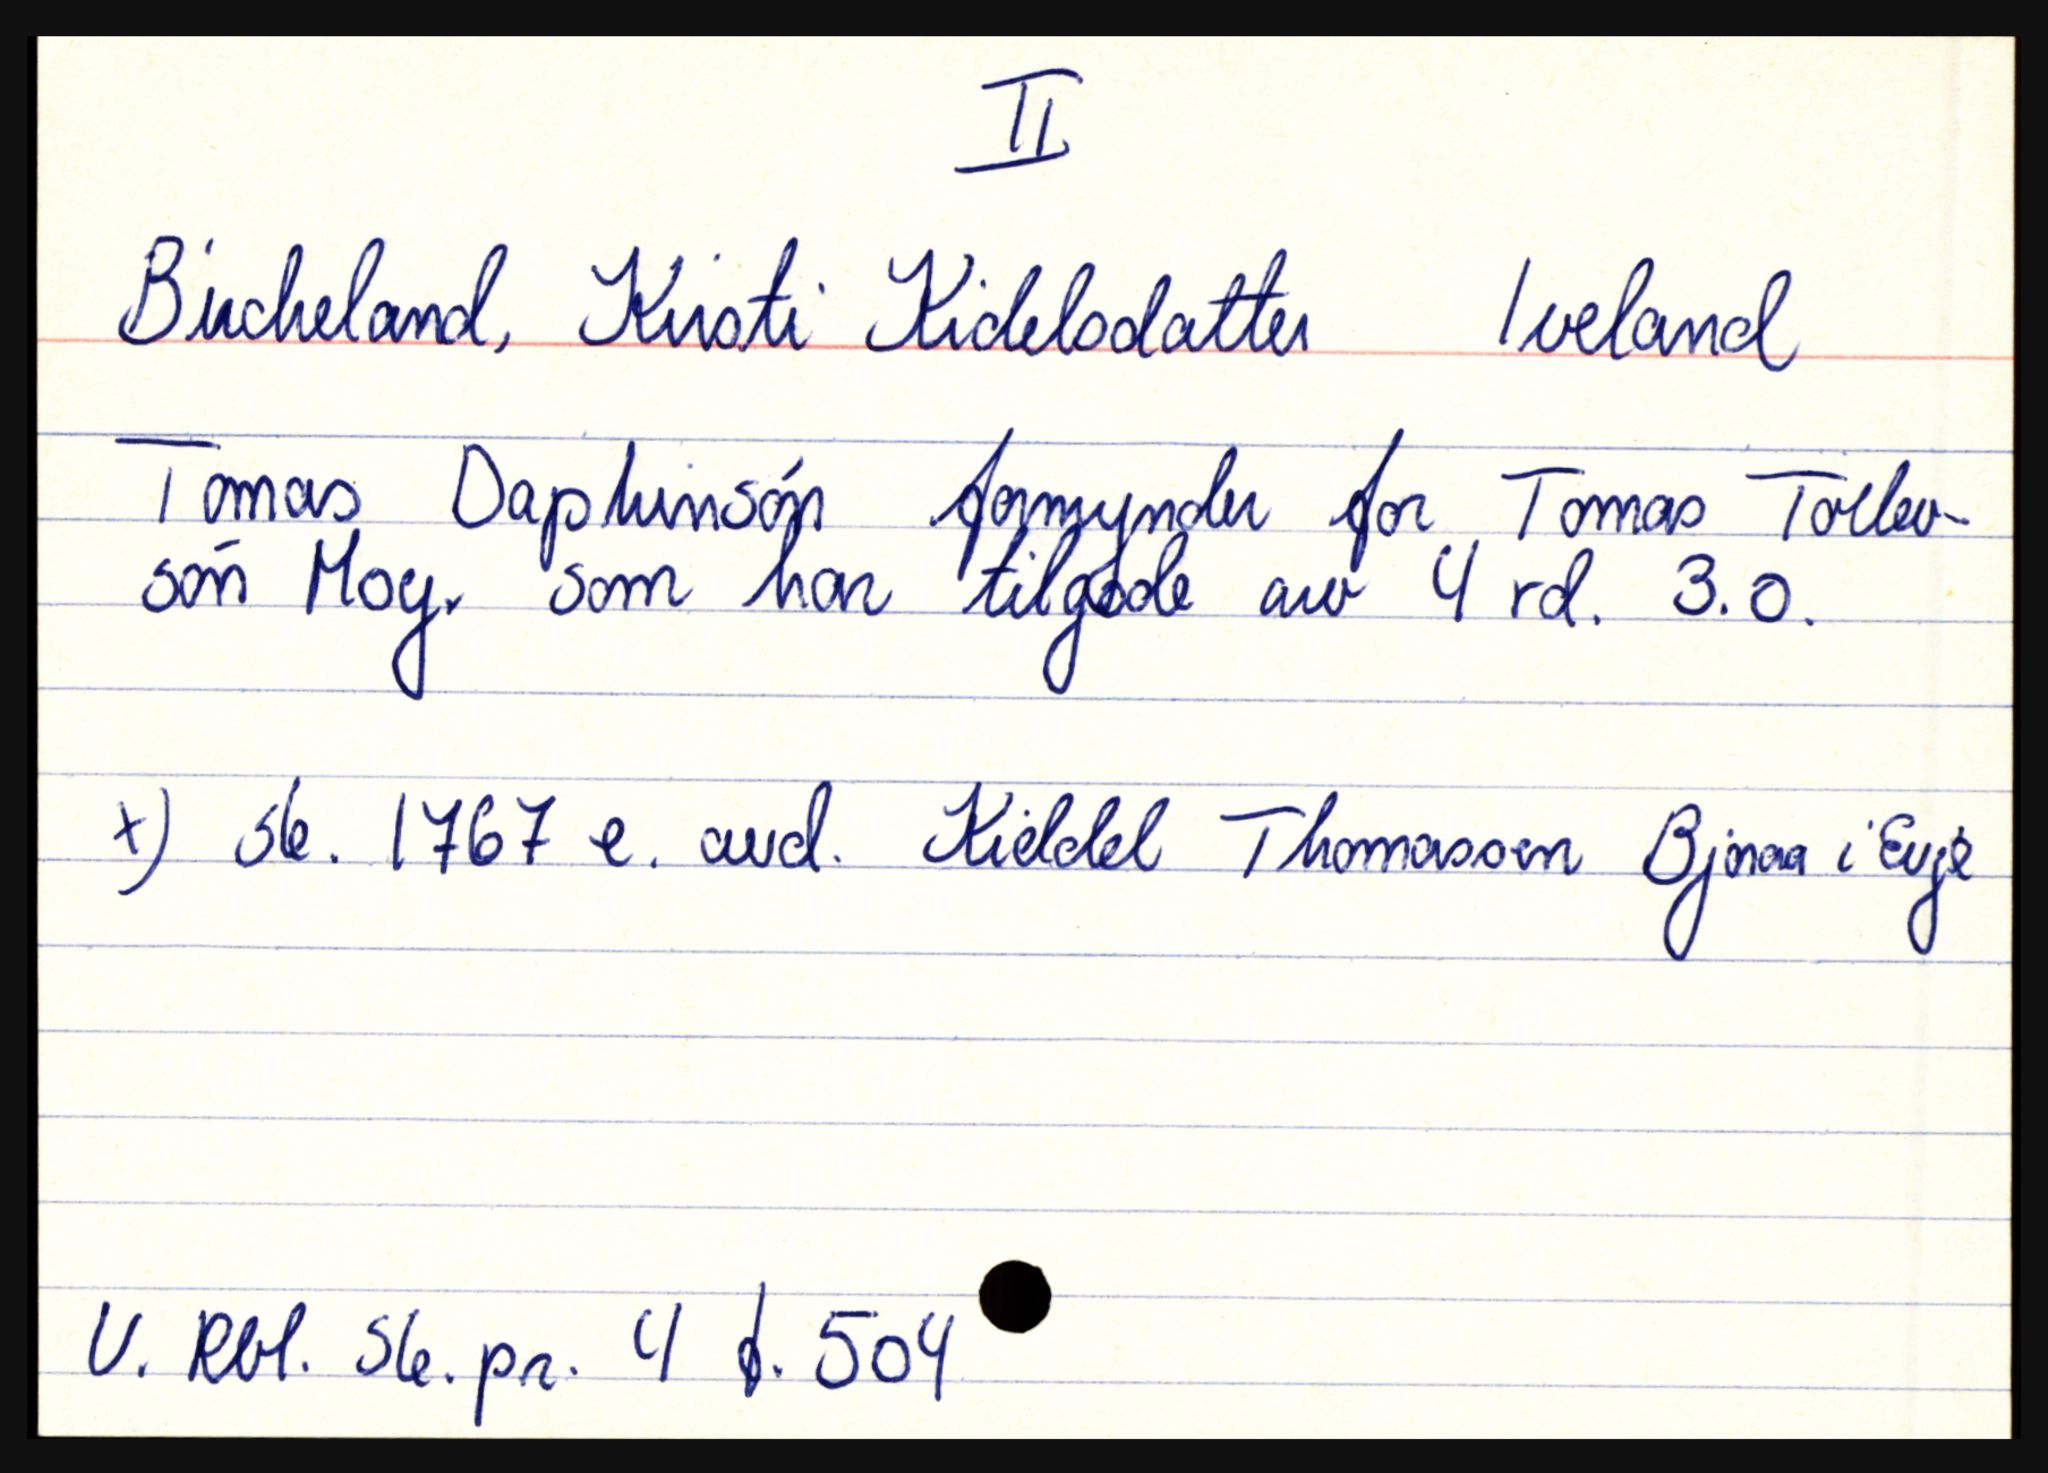 II
Bircheland, Kirsti Kidelsdatter Iveland
Tomas Daphinsón formynder for Tomas Tollev-
són Moy. som har tilgode av 4 rd. 3.0.
x) sk. 1767 e. avd. Kieddel Thomassen Bjoraa i Evje
V. Rbl. Sk. pr. 4 f. 504